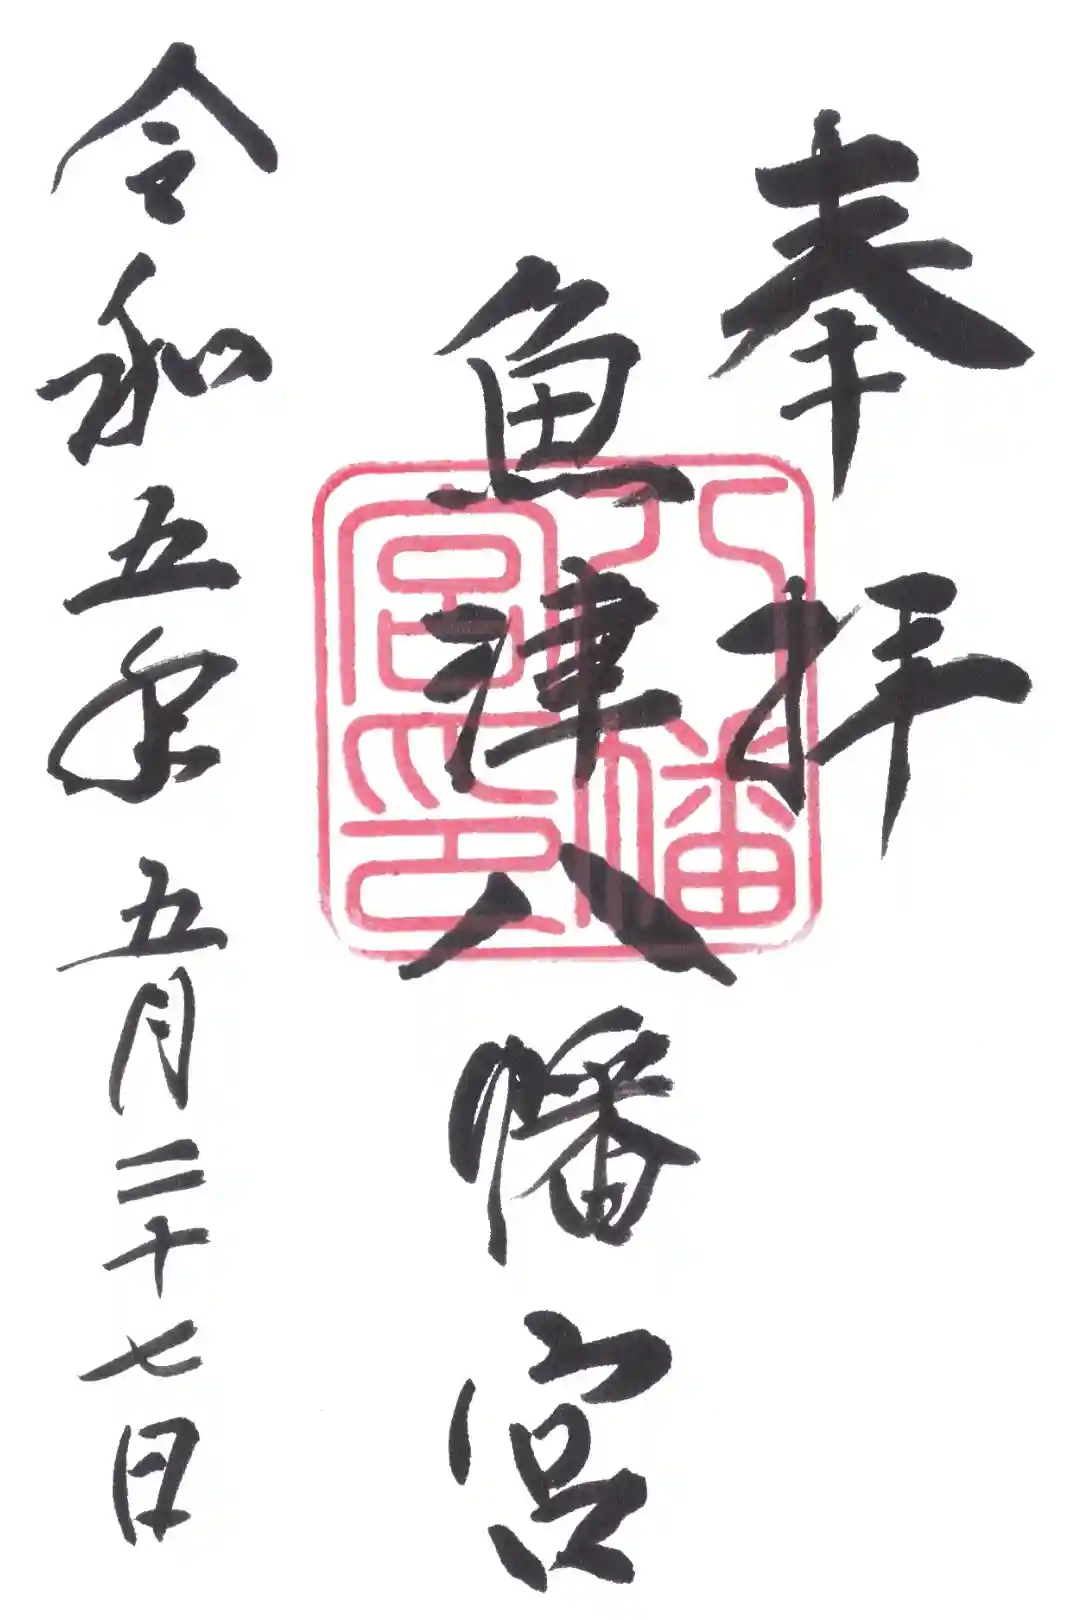 奉拝
魚津八幡宮
八幡宮印
令和五年五月二十七日